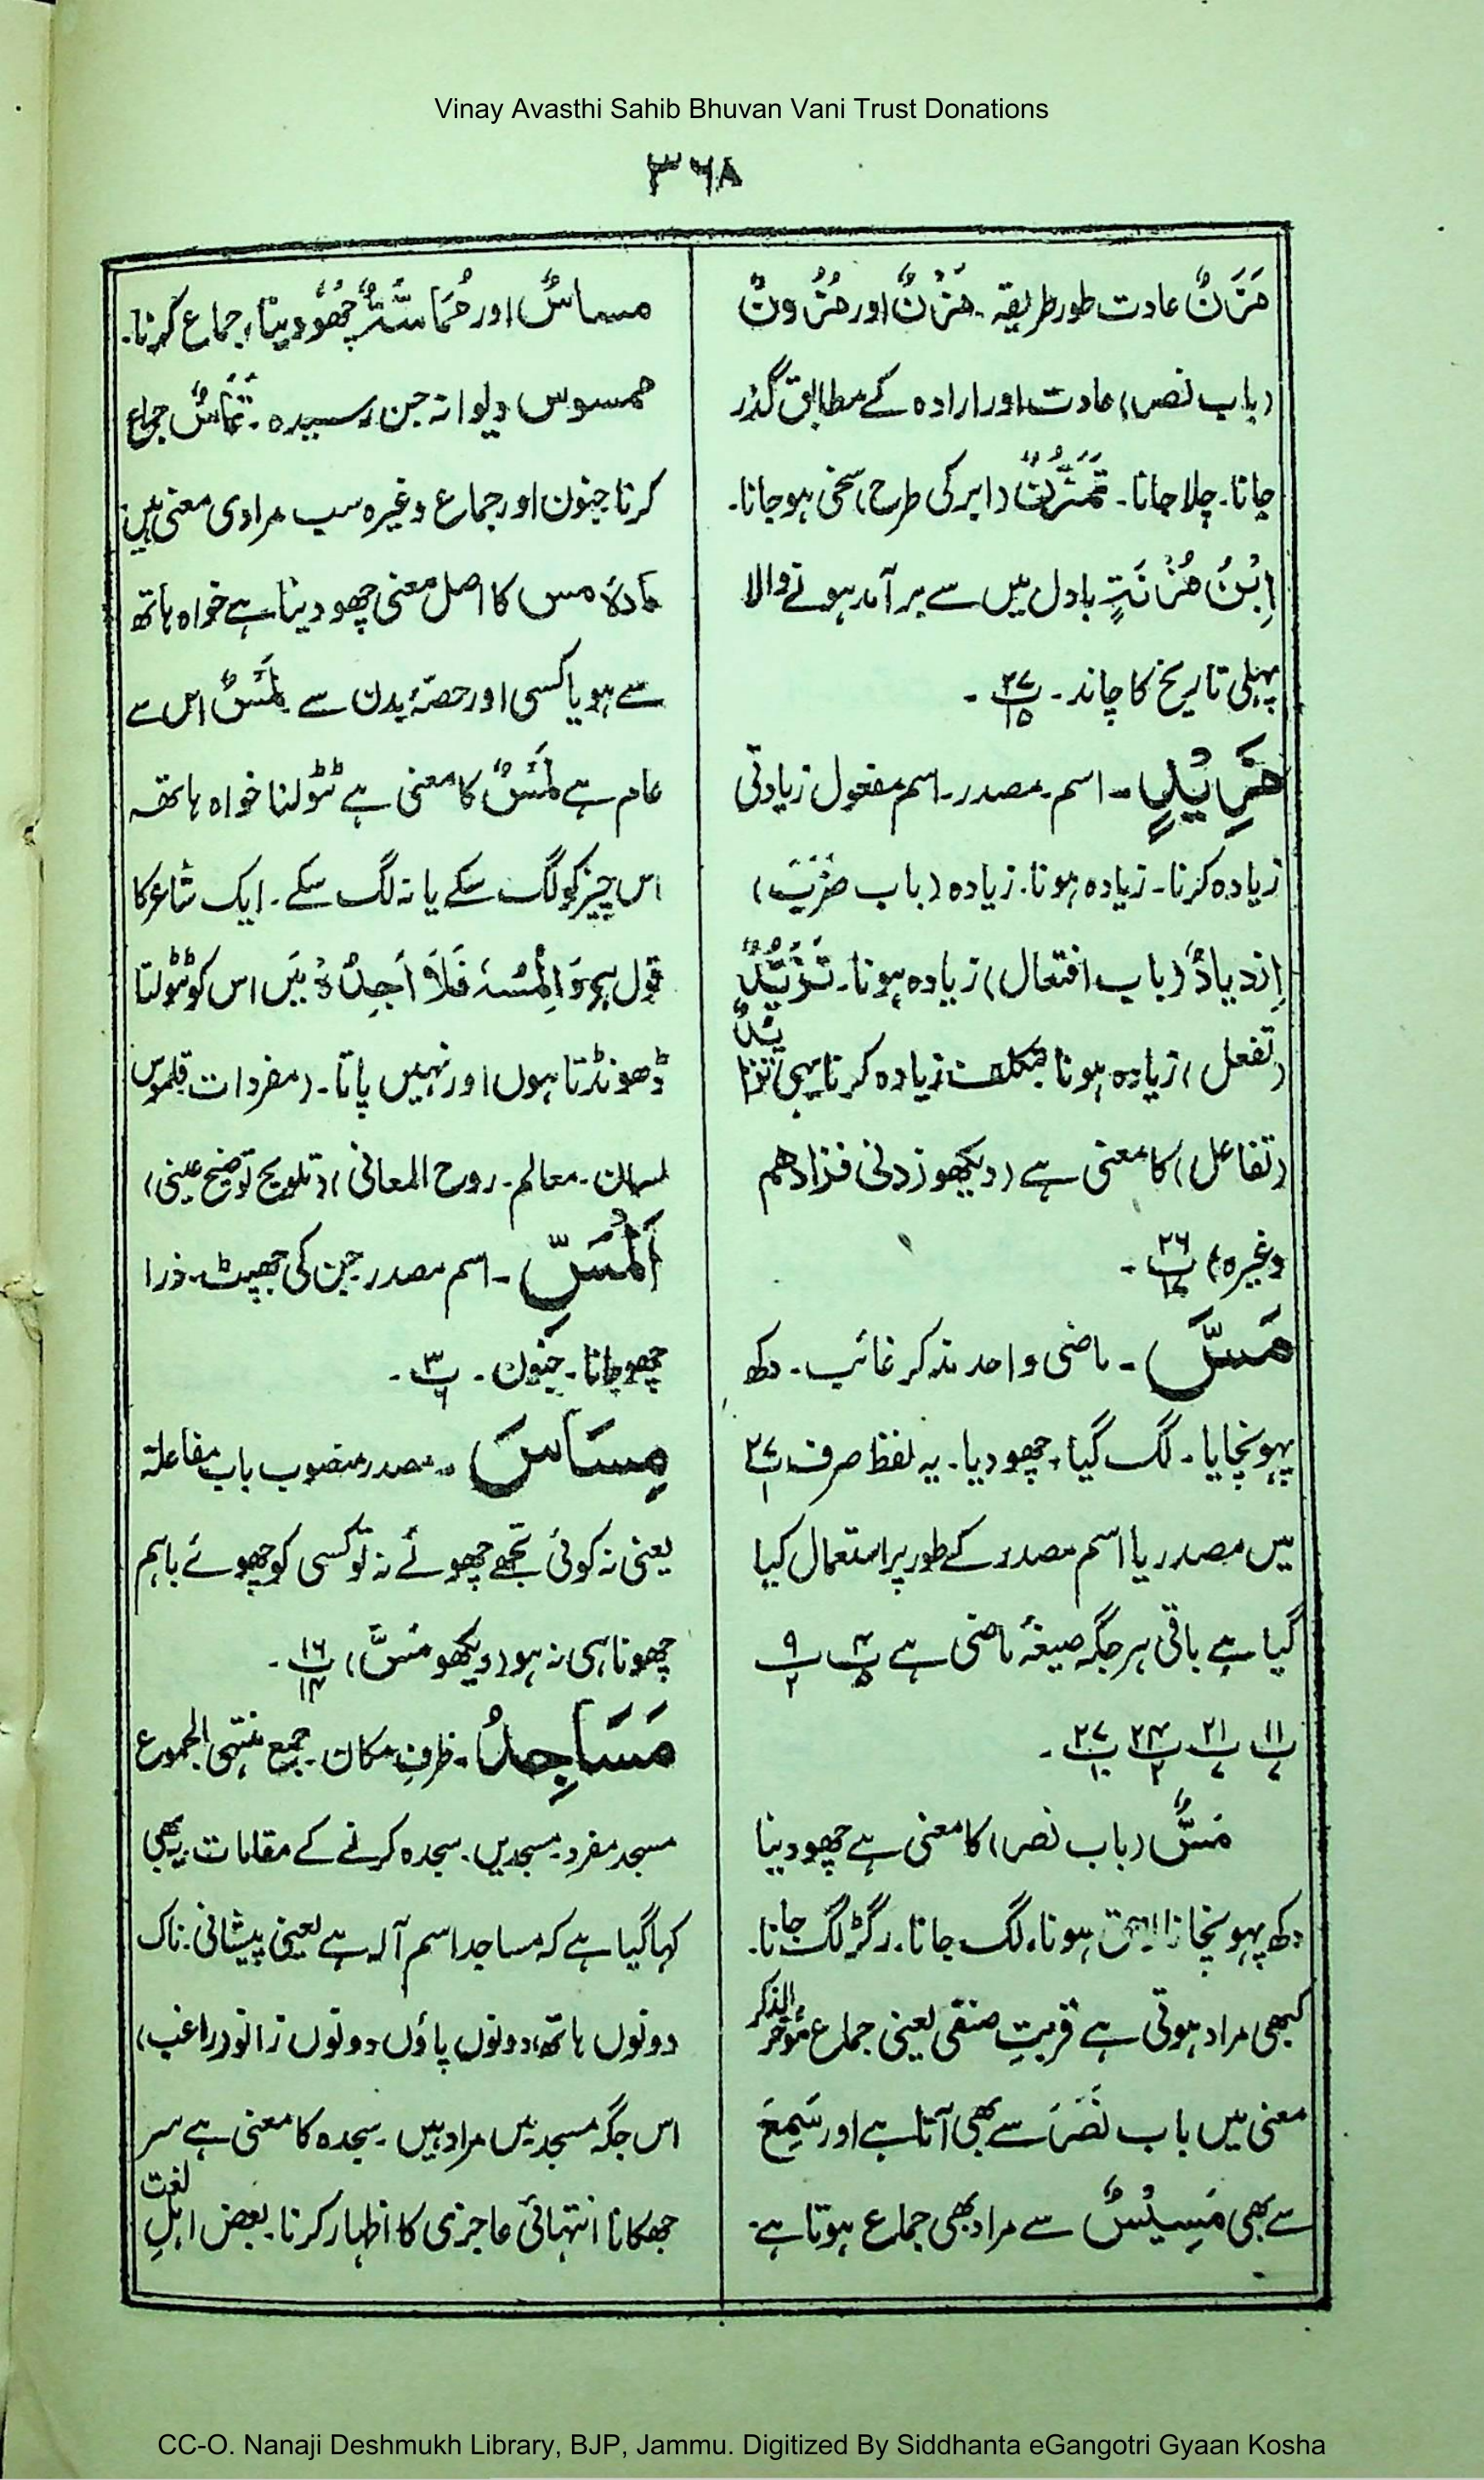 Vinay Avasthi Sahib Bhuvan Vani Trust Donations
٣٦٨
مَزَنٌ عادت طور طریقہ۔ مَزْنٌ اور مُزُونٌ
(باب نصر) عادت اور ارادہ کے مطابق گذر
جانا۔ چلا جانا۔ تَمَزُّنٌ (ابر کی طرح) سخی ہوجانا۔
اِبْنُ مُزْنَةٍ بادل میں سے برآمد ہونے والا
پہلی تاریخ کا چاند۔ پ۲۷/۱۵ ۔
مَزِیْدٍ۔ اسم۔ مصدر۔ اسم مفعول زیادتی
زیادہ کرنا۔ زیادہ ہونا۔ زیادہ (باب ضَرَبَ)
اِزْدِیادٌ (باب افتعال) زیادہ ہونا۔ تَزَیُّدٌ
(تفعل) زیادہ ہونا بتکلف زیادہ کرنا یہی تَزَایُدٌ
(تفاعل) کا معنی ہے (دیکھو زدنی فزادھم
وغیرہ) پ۲۶/۱۷ ۔
مَسَّ۔ ماضی واحد مذکر غائب۔ دکھ
پہونچایا۔ لگ گیا۔ چھو دیا۔ یہ لفظ صرف پ۲۷/۱
میں مصدر یا اسم مصدر کے طور پر استعمال کیا
گیا ہے باقی ہر جگہ صیغۂ ماضی ہے پ۴/۵ پ۹/۲
پ۱۱/۷ پ۲۱/۷ پ۲۴/۲ پ۲۷/۱۰ ۔
مَسٌّ (باب نصر) کا معنی ہے چھو دینا
دکھ پہونچانا ہونا، لگ جانا۔ رگڑ لگ جانا۔
کبھی مراد ہوتی ہے قربتِ صنفی یعنی جماع مؤخر الذکر
معنی میں باب نَصَرَ سے بھی آتا ہے اور سَمِعَ
سے بھی مَسِیْسٌ سے مراد بھی جماع ہوتا ہے۔
مساسٌ اور مُمَاسَّةٌ چھو دینا، جماع کرنا۔
ممسوس دیوانہ جن رسیدہ۔ تَمَاسٌّ جماع
کرنا جنون اور جماع وغیرہ سب مرادی معنی ہیں
مادۂ مس کا اصل معنی چھو دینا ہے خواہ ہاتھ
سے ہو یا کسی اور حصّۂ بدن سے لَمْسٌ اس سے
عام ہے لَمْسٌ کا معنی ہے ٹٹولنا خواہ ہاتھ
اس چیز کو لگ سکے یا نہ لگ سکے۔ ایک شاعر کا
قول ہے وَاَلْمِسُہٗ فَلَا اَجِدُہٗ میں اس کو ٹٹولتا
ڈھونڈتا ہوں اور نہیں پاتا۔ (مفردات قاموس
لسان۔ معالم۔ روح المعانی) (تلویح توضیح عینی)
اَلْمَسِّ۔ اسم مصدر جن کی جھپٹ۔ ذرا
چھو جانا۔ جنون۔ پ۳/۶ ۔
مِسَاسَ۔ مصدر منصوب باب مفاعلة
یعنی نہ کوئی تجھے چھوئے نہ تو کسی کو چھوئے باہم
چھونا ہی نہ ہو (دیکھو مَسَّ) پ۱۶/۱۴ ۔
مَسَاجِدُ۔ ظرفِ مکان۔ جمع منتہی الجموع
مسجد مفرد۔ مسجدیں۔ سجدہ کرنے کے مقامات۔ یہ بھی
کہا گیا ہے کہ مساجد اسم آلہ ہے یعنی پیشانی۔ ناک
دونوں ہاتھ، دونوں پاؤں دونوں زانو (راغب)
اس جگہ مسجدیں مراد ہیں۔ سجدہ کا معنی ہے سر
جھکانا انتہائی عاجزی کا اظہار کرنا۔ بعض اہلِ لغت
CC-O. Nanaji Deshmukh Library, BJP, Jammu. Digitized By Siddhanta eGangotri Gyaan Kosha